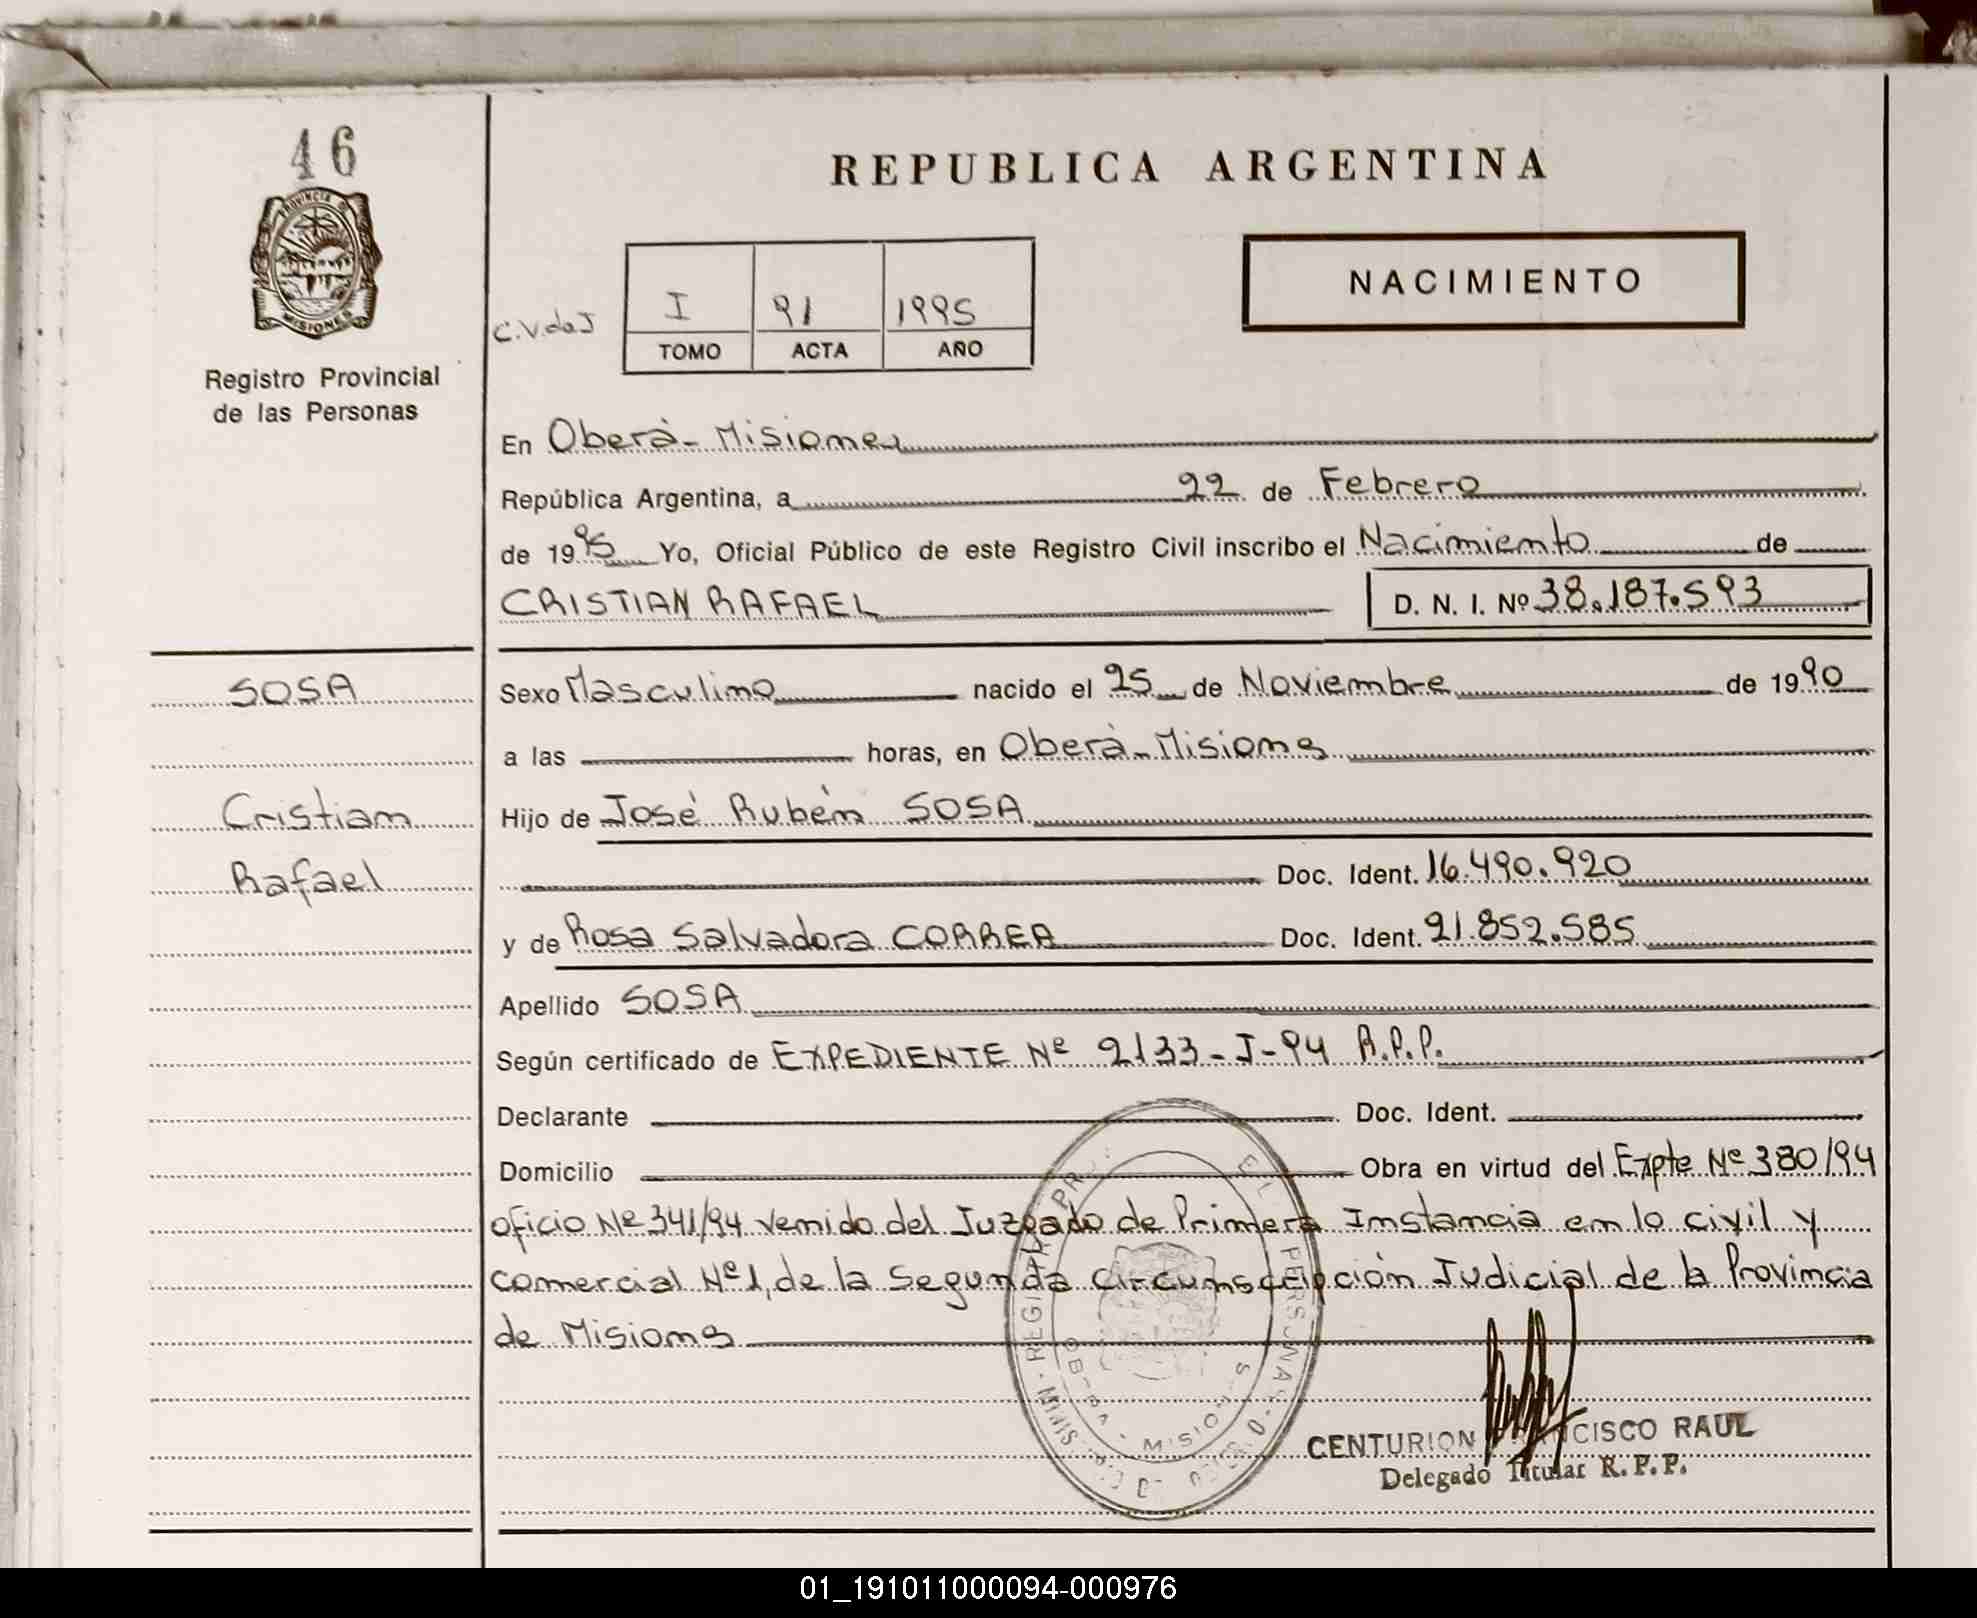 46
REPUBLICA ARGENTINA
PROVINCIA DE
MISIONES
NACIMIENTO
C.V.daJ
I 91 1995
TOMO ACTA AÑO
Registro Provincial
de las Personas
En Oberá - Misiones
República Argentina, a 22 de Febrero
de 1995 Yo, Oficial Público de este Registro Civil inscribo el Nacimiento de
CRISTIAN RAFAEL D. N. I. Nº 38.187.593
SOSA
Sexo Masculino nacido el 25 de Noviembre de 1990
a las horas, en Oberá - Misiones
Cristian
Hijo de José Rubén SOSA
Rafael
Doc. Ident. 16.490.920
y de Rosa Salvadora CORREA Doc. Ident. 21.852.585
Apellido SOSA
Según certificado de EXPEDIENTE Nº 2133-J-94 R.P.P.
Declarante Doc. Ident.
Domicilio Obra en virtud del Expte Nº 380/94
oficio Nº 341/94 venido del Juzgado de Primera Instancia en lo civil y
comercial Nº 1, de la Segunda Circunscripción Judicial de la Provincia
de Misiones
CENTURION CISCO RAUL
Delegado Titular R.P.P.
01_191011000094-000976